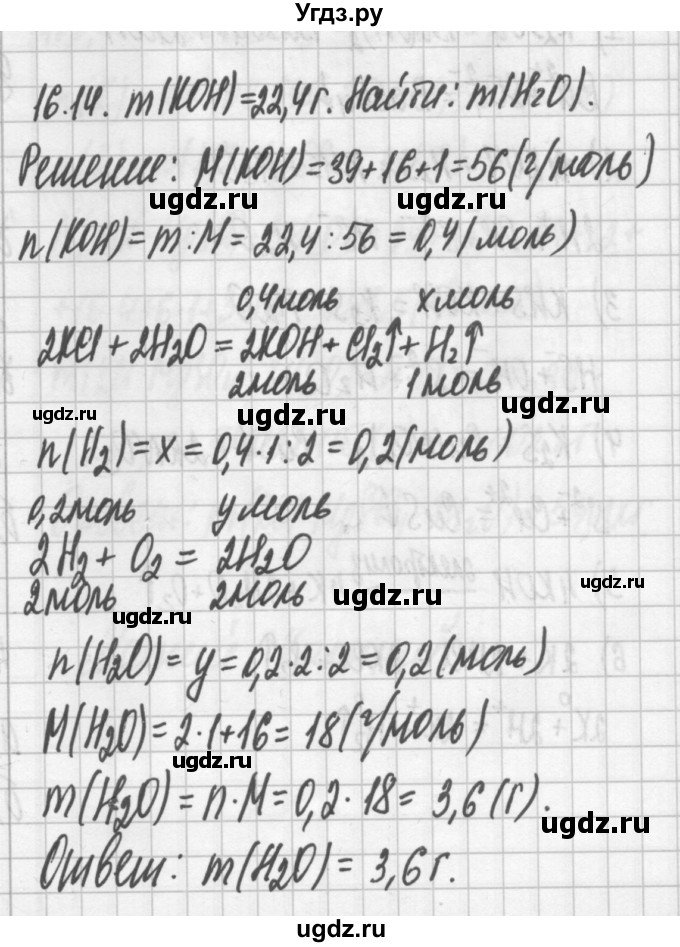 Угдз.ру
16.14. m(KOH)=22,4г. Найти: m(H₂O).
Решение: M(KOH)=39+16+1=56(г/моль)
ugdz.ru ugdz.ru
n(KOH)=m:M=22,4:56=0,4(моль)
0,4моль xмоль
2KCl+2H₂O=2KOH+Cl₂↑+H₂↑
2моль 1моль
ugdz.ru ugdz.ru ugdz.ru
n(H₂)=x=0,4·1:2=0,2(моль)
0,2моль yмоль
2H₂+O₂=2H₂O
2моль 2моль
ugdz.ru ugdz.ru ugdz.ru
n(H₂O)=y=0,2·2:2=0,2(моль)
M(H₂O)=2·1+16=18(г/моль)
ugdz.ru
m(H₂O)=n·M=0,2·18=3,6(г).
ugdz.ru
Ответ: m(H₂O)=3,6г.
ugdz.ru